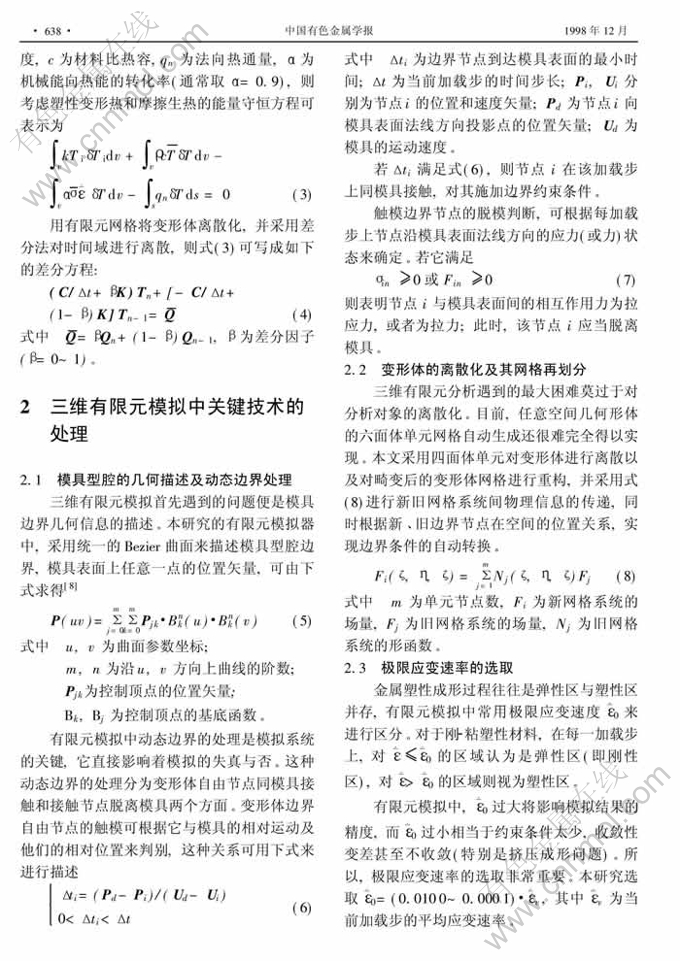 · 638 ·
中国有色金属学报
1998 年 12 月
度, c 为材料比热容, qn 为法向热通量, α 为
机械能向热能的转化率( 通常取 α= 0. 9) , 则
考虑塑性变形热和摩擦生热的能量守恒方程可
表示为
∫v kT,i δT,i dv + ∫v ρcṪ δT dv −
∫v ασ̄ε̄̇ δT dv − ∫s qn δT ds = 0 (3)
用有限元网格将变形体离散化, 并采用差
分法对时间域进行离散, 则式( 3) 可写成如下
的差分方程:
( C/ Δt+ βK) Tn+ [ - C/ Δt+
(1- β) K] Tn- 1= Q̄ (4)
式中 Q̄= βQn+ (1- β) Qn- 1, β 为差分因子
( β= 0~ 1) 。
2 三维有限元模拟中关键技术的
处理
2. 1 模具型腔的几何描述及动态边界处理
三维有限元模拟首先遇到的问题便是模具
边界几何信息的描述。本研究的有限元模拟器
中, 采用统一的 Bezier 曲面来描述模具型腔边
界, 模具表面上任意一点的位置矢量, 可由下
式求得[8]
P( uv) = Σ(j=0, m) Σ(k=0, m) Pjk•Bk^n( u)•Bk^n( v) (5)
式中 u, v 为曲面参数坐标;
m, n 为沿 u, v 方向上曲线的阶数;
Pjk为控制顶点的位置矢量;
Bk, Bj 为控制顶点的基底函数。
有限元模拟中动态边界的处理是模拟系统
的关键, 它直接影响着模拟的失真与否。这种
动态边界的处理分为变形体自由节点同模具接
触和接触节点脱离模具两个方面。变形体边界
自由节点的触模可根据它与模具的相对运动及
他们的相对位置来判别, 这种关系可用下式来
进行描述
Δti= ( Pd- Pi)/( Ud- Ui)
0< Δti< Δt (6)
式中 Δti 为边界节点到达模具表面的最小时
间; Δt 为当前加载步的时间步长; Pi, Ui 分
别为节点 i 的位置和速度矢量; Pd 为节点 i 向
模具表面法线方向投影点的位置矢量; Ud 为
模具的运动速度。
若 Δti 满足式(6) , 则节点 i 在该加载步
上同模具接触, 对其施加边界约束条件。
触模边界节点的脱模判断, 可根据每加载
步上节点沿模具表面法线方向的应力( 或力) 状
态来确定。若它满足
σin ≥0 或 Fin ≥0 (7)
则表明节点 i 与模具表面间的相互作用力为拉
应力, 或者为拉力; 此时, 该节点 i 应当脱离
模具。
2. 2 变形体的离散化及其网格再划分
三维有限元分析遇到的最大困难莫过于对
分析对象的离散化。目前, 任意空间几何形体
的六面体单元网格自动生成还很难完全得以实
现。本文采用四面体单元对变形体进行离散以
及对畸变后的变形体网格进行重构, 并采用式
(8) 进行新旧网格系统间物理信息的传递, 同
时根据新、旧边界节点在空间的位置关系, 实
现边界条件的自动转换。
Fi( ζ, η, ζ) = Σ(j=1, m) Nj( ζ, η, ζ) Fj (8)
式中 m 为单元节点数, Fi 为新网格系统的
场量, Fj 为旧网格系统的场量, Nj 为旧网格
系统的形函数。
2. 3 极限应变速率的选取
金属塑性成形过程往往是弹性区与塑性区
并存, 有限元模拟中常用极限应变速度 ε̇0 来
进行区分。对于刚-粘塑性材料, 在每一加载步
上, 对 ε̇≤ε̇0 的区域认为是弹性区( 即刚性
区) , 对 ε̇> ε̇0 的区域则视为塑性区。
有限元模拟中, ε̇0 过大将影响模拟结果的
精度, 而 ε̇0 过小相当于约束条件太少, 收敛性
变差甚至不收敛( 特别是挤压成形问题) 。所
以, 极限应变速率的选取非常重要。本研究选
取 ε̇0= ( 0. 010 0~ 0. 000 1) • ε̇v, 其中 ε̇v 为当
前加载步的平均应变速率。
有色金属在线
www.cnnmol.com
有色金属在线
www.cnnmol.com